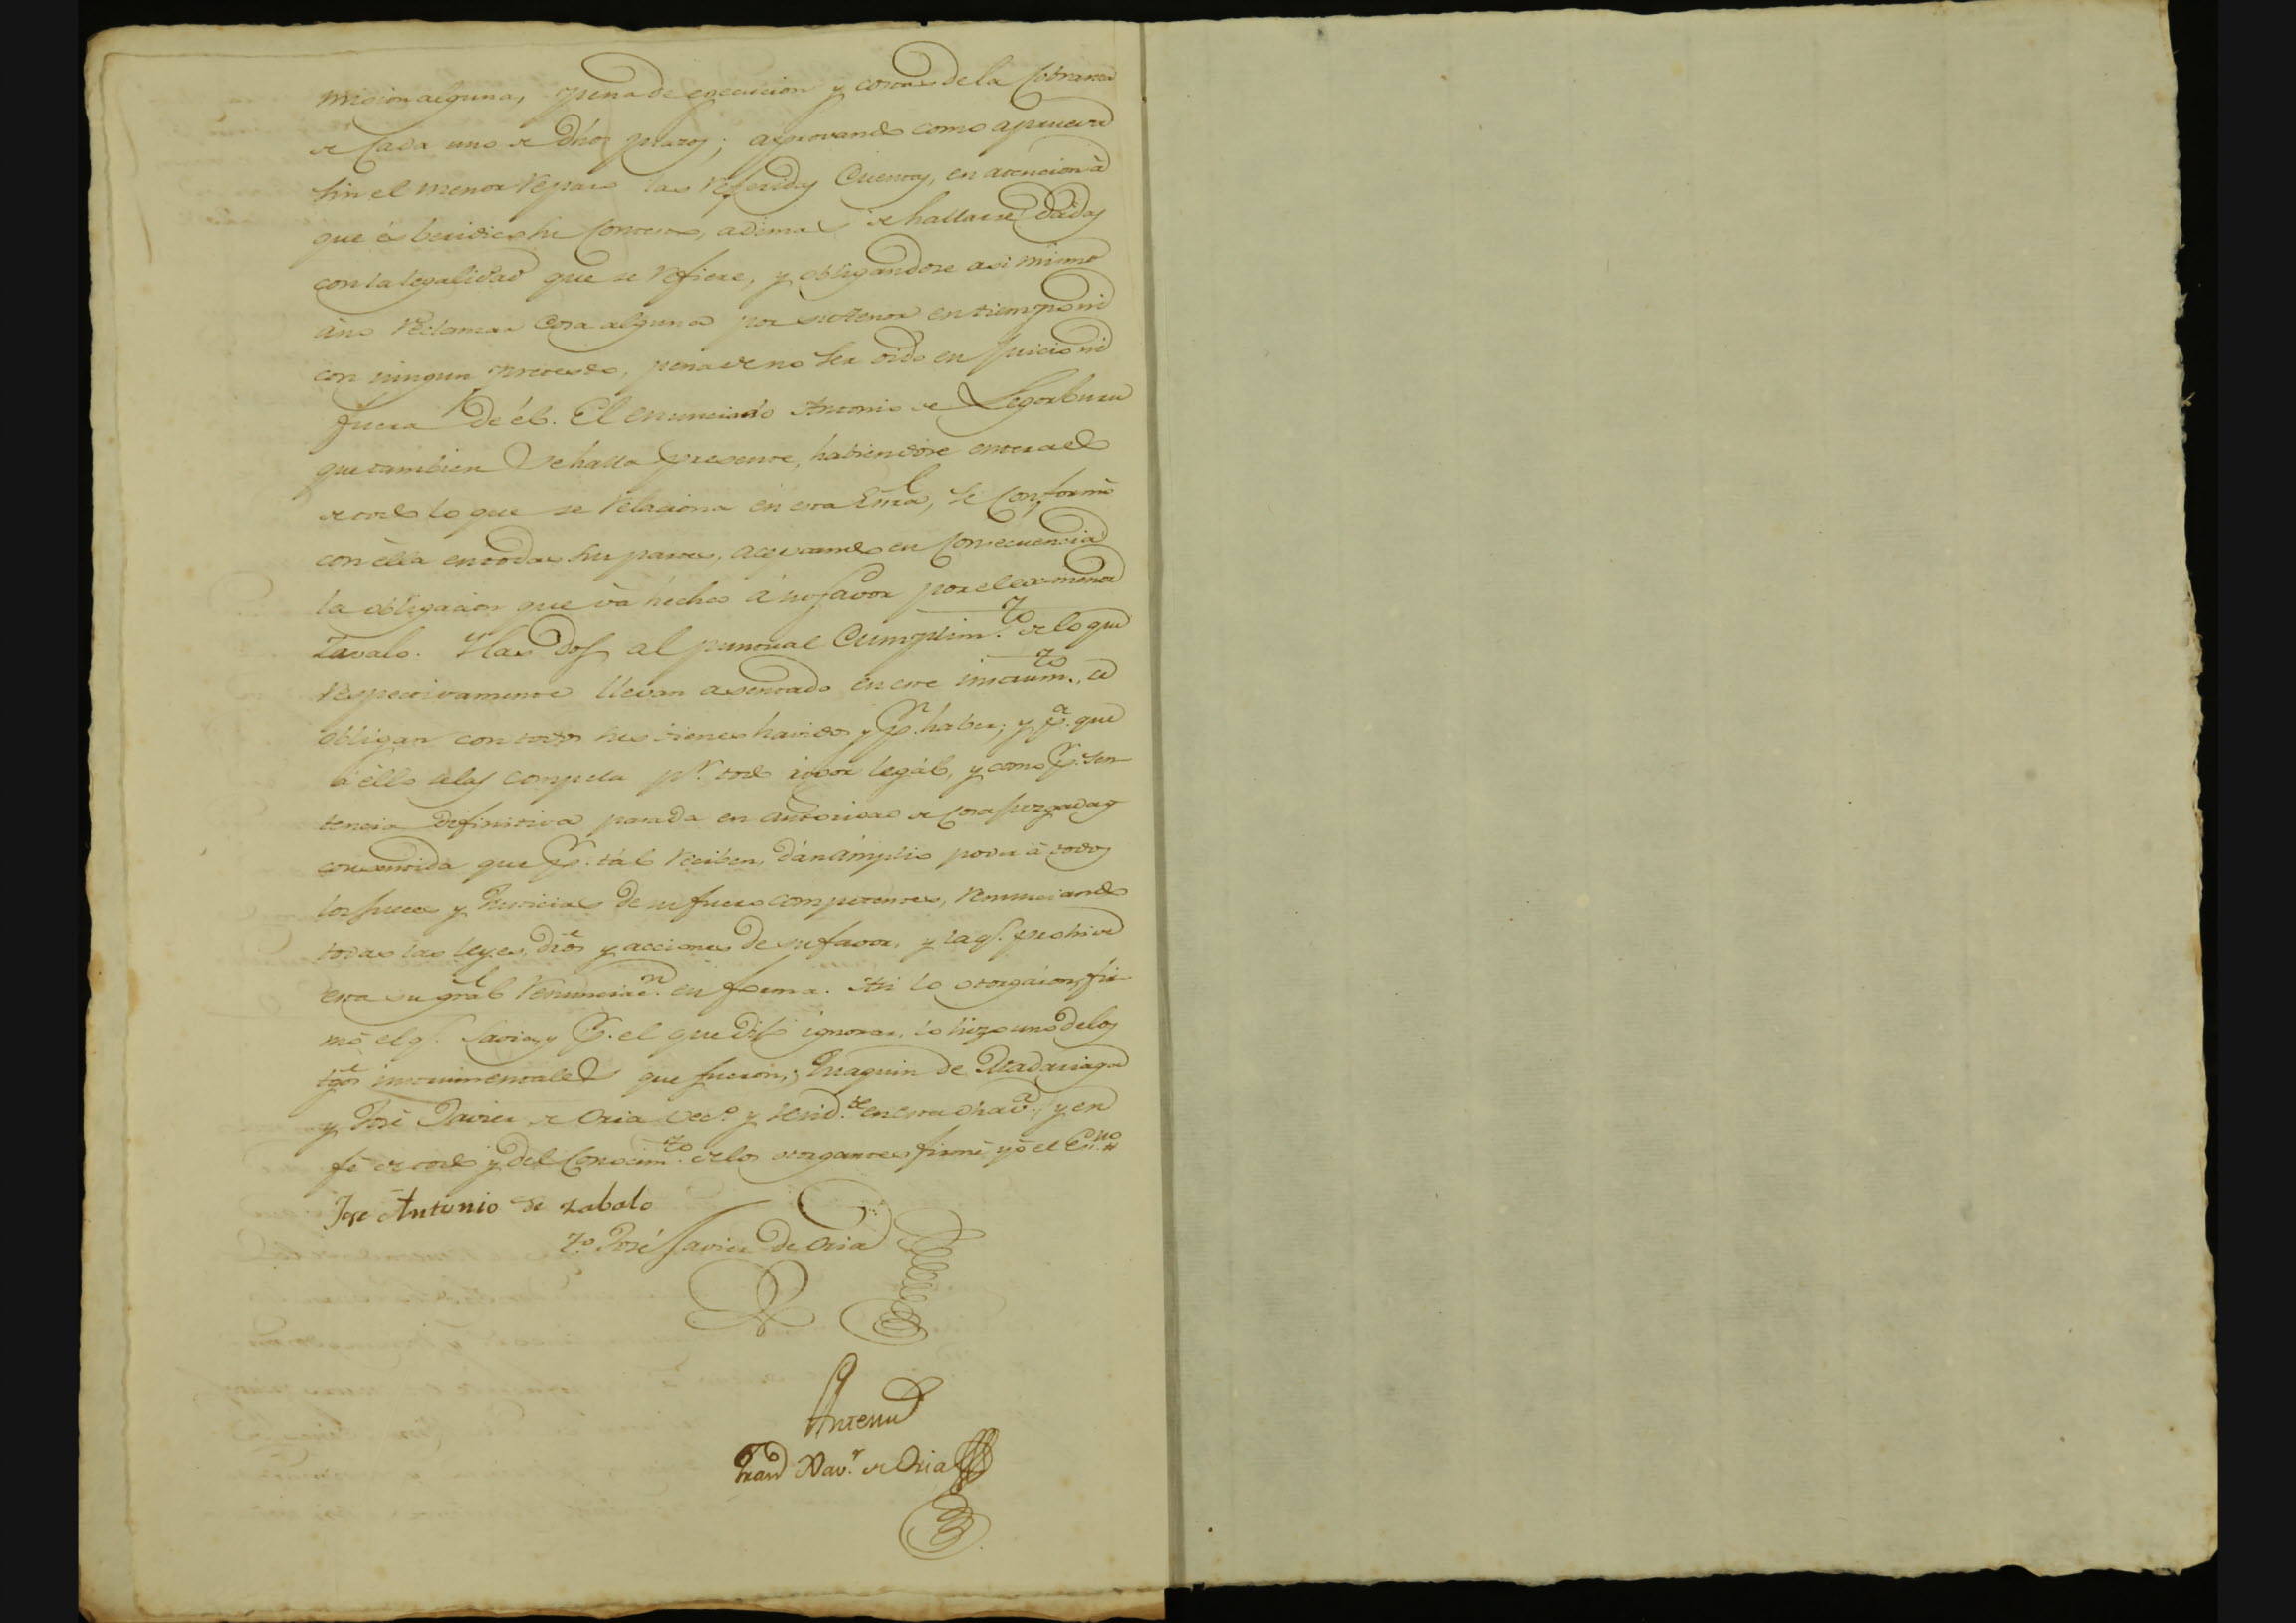 mision alguna, pena de egecucion y costas de la Cobranza
de Cada uno de dhos plazos; aprovando como aprueva
sin el menor reparo las referidas Cuentas, en atencion à
que es beridico su Contesto, ademas de hallarse dadas
con la legalidad que se refiere, y obligandose asi mismo
àno reclamar Cosa alguna por su tenor en tiempo ni
con ningun pretesto, pena de no ser oido en juicio ni
fuera de él. El enunciado Antonio de Legorburu
que tambien se halla presente, habiendose enterado
de todo lo que se relaciona en esta Esrâ, se Conformò
con èlla en todas sus partes, acevtando en Consecuencia
la obligacion que và hecha à su favor por el ex-menor
Zavalo. Y las dos al puntual Cumplim.to de lo que
respectivamente llevan asentado en este instrum.to, se
obligan con todos sus vienes havidos y p.r haber; y p.a que
à éllo se las compela p.r todo rigor legál, y como p.r sen-
tencia definitiva pasada en autoridad de Cosa juzgada y
consentida que p.r tál reciben, dán ámplio poder à todos
los jueces y Justicias de su fuero competentes, renunciando
todas las leyes, drôs y acciones de su favor, y la q.e prohive
esta su grâl renunciac.n en forma. Asi lo otorgaron, fir-
mò el q.e Savia, y p.r el que dijo ignorar, lo hizo uno de los
tgôs instrumentales que fueron, Juaquin de Madariaga
y José Javier de Oria vec.s y resid.te en esta dha v.a, y en
fé de todo y del Conocim.to de los otorgantes firmé yó el Es.no
Jose Antonio de zabalo
T.o José Javier de Oria
Antemi
Juan Xav.r de Oria